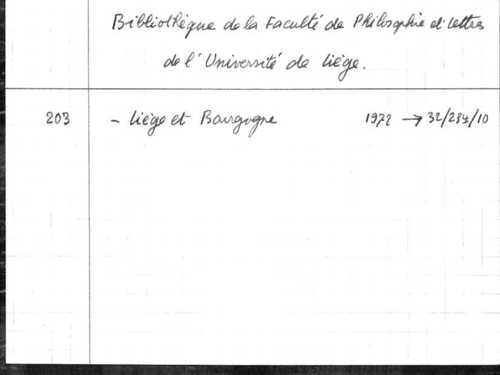 Bibliothèque de la Faculté de Philosophie et Lettres
de l'Université de Liège.
203 - Liège et Bourgogne 1972 → 32/234/10